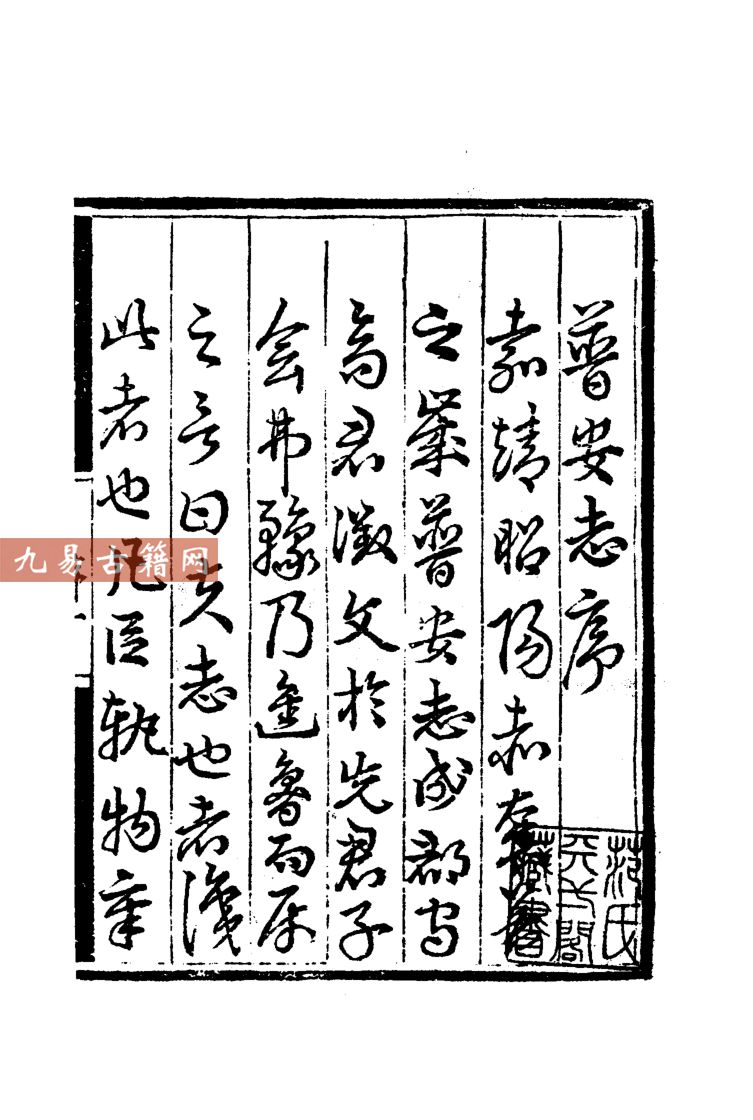 普安志序
嘉靖昭陽赤奮若
之歲普安志成郡守
高君徵文於先君子
会弗豫乃進魯而
之言曰夫志也者識
此者也凡軌物章
范氏
天一閣
藏書
九易古籍网